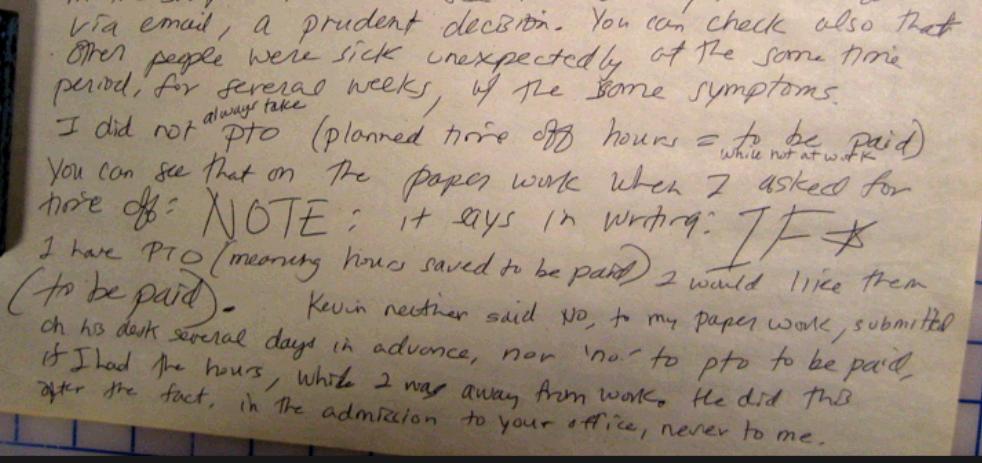 via email, a prudent decision. You can check also that
other people were sick unexpectedly at the same time
period, for several weeks, w/ the same symptoms.
always take
I did not pto (planned time off hours = to be paid)
while not at work
You can see that on the paper work when I asked for
time off: NOTE: it says in writing: IF*
I have PTO (meaning hours saved to be paid) I would like them
(to be paid). Kevin neither said NO, to my paper work, submitted
on his desk several days in advance, nor 'no' to pto to be paid,
if I had the hours, while I was away from work. He did this
after the fact, in the admission to your office, never to me.